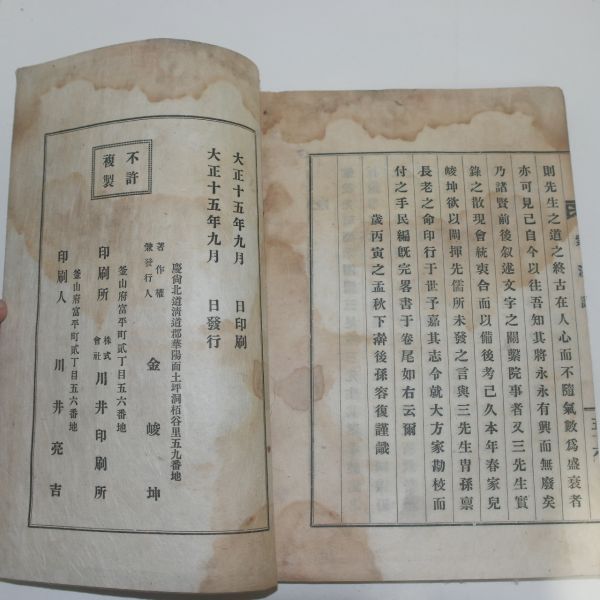 則先生之道之終古在人心而不隨氣數爲盛衰者
亦可見已自今以往吾知其將永永有興而無廢矣
乃諸賢前後叙述文字之關繫院事者又三先生實
錄之散現會統裒合而以備後考已久本年春家兒
峻坤欲以闡揮先儒所未發之言與三先生胄孫禀
長老之命印行于世予嘉其志令就大方家勘校而
付之手民編旣完畧書于卷尾如右云爾
歲丙寅之孟秋下澣後孫容復謹識
大正十五年九月 日印刷
大正十五年九月 日發行
不許
複製
慶尙北道淸道郡華陽面土坪洞栢谷里五九番地
著作權
兼發行人 金峻坤
釜山府富平町貳丁目五六番地
印刷所 株式會社 川井印刷所
釜山府富平町貳丁目五六番地
印刷人 川井亮吉